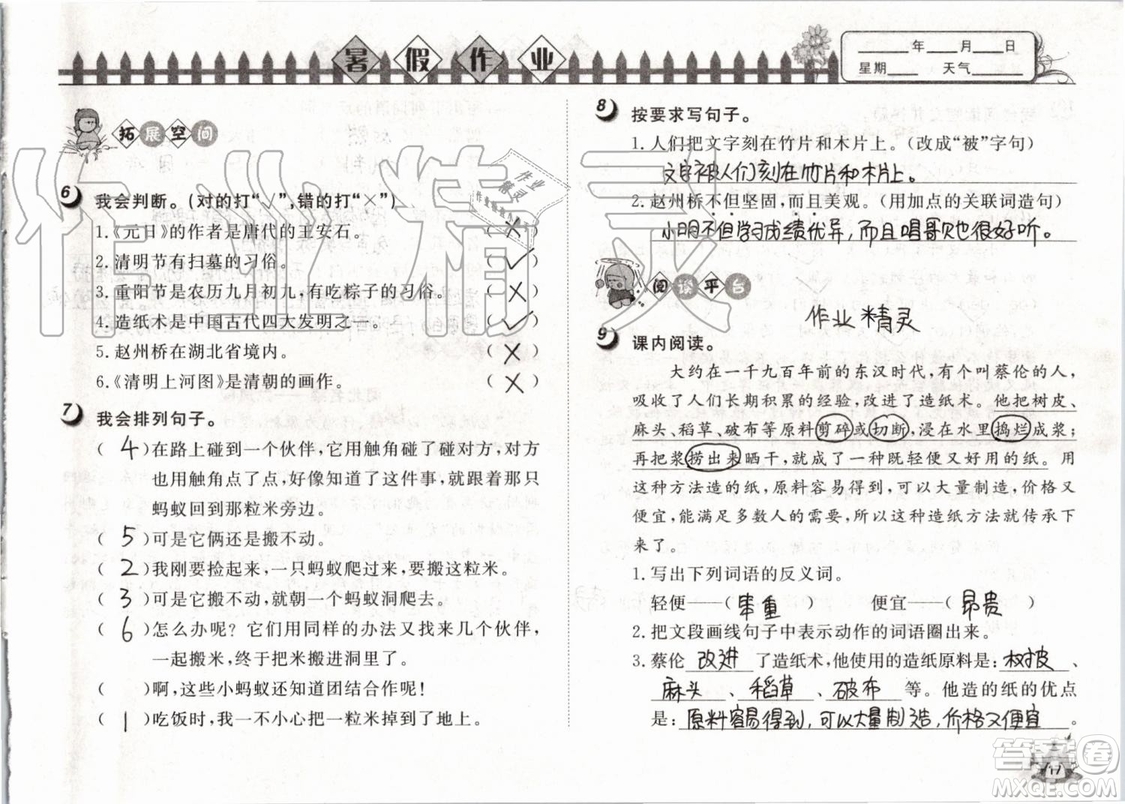 暑假作业
____年____月____日
星期____ 天气____
拓展空间
6 我会判断。(对的打“√”,错的打“×”)
1.《元日》的作者是唐代的王安石。
2.清明节有扫墓的习俗。 (√)
3.重阳节是农历九月初九,有吃粽子的习俗。 (×)
4.造纸术是中国古代四大发明之一。 (√)
5.赵州桥在湖北省境内。 (×)
6.《清明上河图》是清朝的画作。 (×)
7 我会排列句子。
(4)在路上碰到一个伙伴,它用触角碰了碰对方,对方
也用触角点了点,好像知道了这件事,就跟那只
蚂蚁回到那粒米旁边。
(5)可是它俩还是搬不动。
(2)我刚要捡起来,一只蚂蚁爬过来,要搬这粒米。
(3)可是它搬不动,就朝一个蚂蚁洞爬去。
(6)怎么办呢?它们用同样的办法又找来几个伙伴,
一起搬米,终于把米搬进洞里了。
( )啊,这些小蚂蚁还知道团结合作呢!
(1)吃饭时,我一不小心把一粒米掉到了地上。
8 按要求写句子。
1.人们把文字刻在竹片和木片上。(改成“被”字句)
文字被人们刻在竹片和木片上。
2.赵州桥不但坚固,而且美观。(用加点的关联词造句)
小明不但学习成绩优异,而且唱歌也很好听。
阅读平台
作业精灵
9 课内阅读。
大约在一千九百年前的东汉时代,有个叫蔡伦的人,
吸收了人们长期积累的经验,改进了造纸术。他把树皮、
麻头、稻草、破布等原料剪碎或切断,浸在水里捣烂成浆;
再把浆捞出来晒干,就成了一种既轻便又好用的纸。用
这种方法造的纸,原料容易得到,可以大量制造,价格又
便宜,能满足多数人的需要,所以这种造纸方法就传承下
来了。
1.写出下列词语的反义词。
轻便——(笨重) 便宜——(昂贵)
2.把文段画线句子中表示动作的词语圈出来。
3.蔡伦 改进 了造纸术,他使用的造纸原料是: 树皮、
麻头、稻草、破布 等。他造的纸的优点
是:原料容易得到,可以大量制造,价格又便宜。
17
答案圈
MXQE.COM